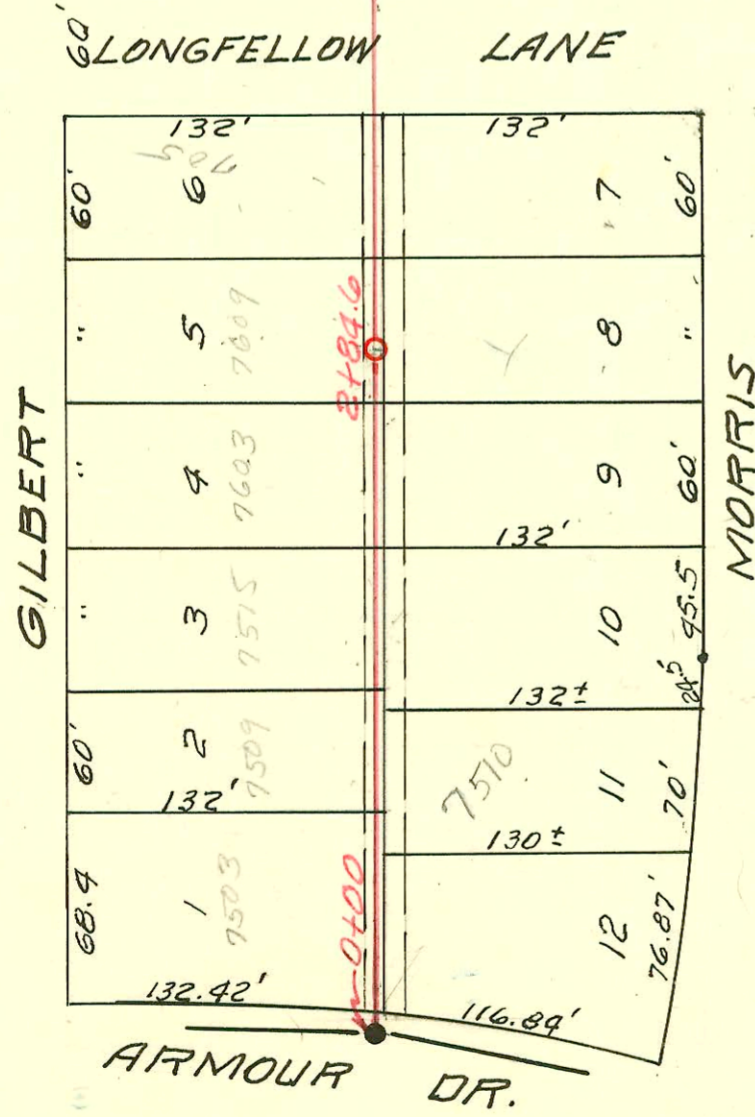 60'
LONGFELLOW LANE
132' 132'
60' 6 7 60'
" 5 7609 2+84.6 8 "
" 4 7603 9 60'
132'
" 3 7515 10 45.5
24.5
132±
60' 2 7509 7510 11 70'
132'
130±
68.4 1 7503 0+00 12 76.87'
132.42' 116.84'
ARMOUR DR.
GILBERT
MORRIS